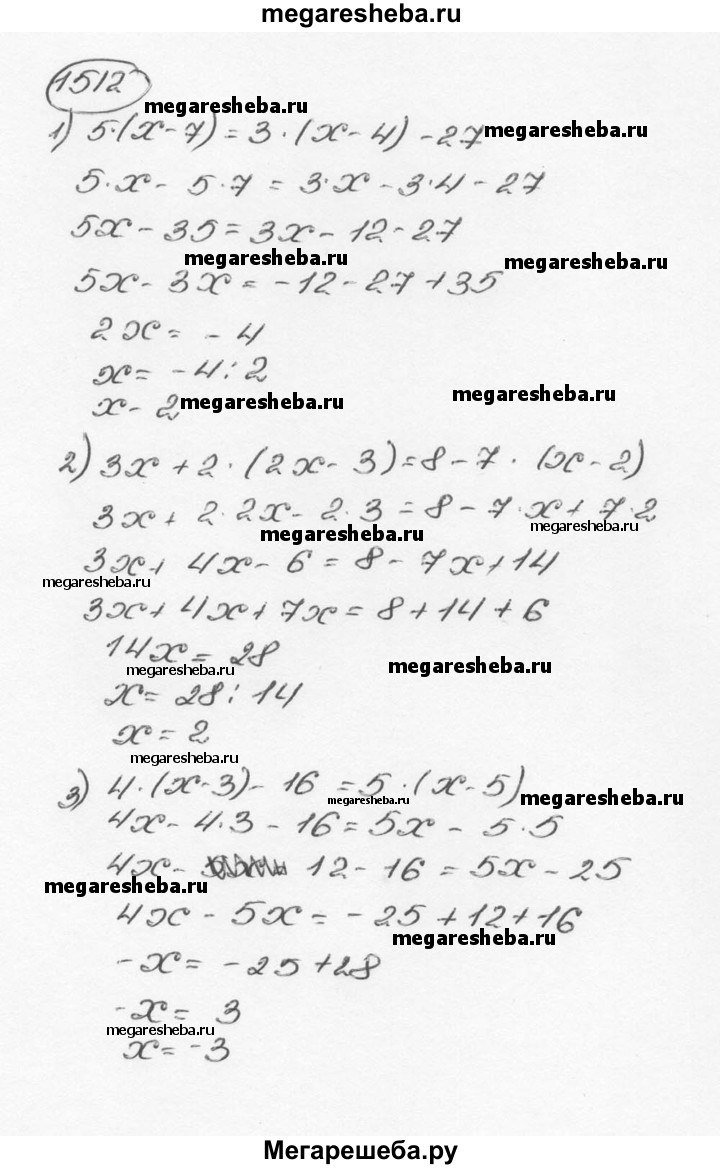 megaresheba.ru
1512
megaresheba.ru
1) 5·(x-7) = 3·(x-4) - 27
megaresheba.ru
5·x - 5·7 = 3·x - 3·4 - 27
5x - 35 = 3x - 12 - 27
megaresheba.ru megaresheba.ru
5x - 3x = -12 - 27 + 35
2x = -4
x = -4:2
megaresheba.ru
x - 2
megaresheba.ru
2) 3x + 2·(2x - 3) = 8 - 7·(x - 2)
3x + 2·2x - 2·3 = 8 - 7·x + 7·2
megaresheba.ru megaresheba.ru
3x + 4x - 6 = 8 - 7x + 14
megaresheba.ru
3x + 4x + 7x = 8 + 14 + 6
14x = 28
megaresheba.ru megaresheba.ru
x = 28:14
x = 2
megaresheba.ru
3) 4·(x-3) - 16 = 5·(x-5)
megaresheba.ru megaresheba.ru
4x - 4·3 - 16 = 5x - 5·5
4x - 12 - 16 = 5x - 25
megaresheba.ru
4x - 5x = -25 + 12 + 16
megaresheba.ru
-x = -25 + 28
-x = 3
megaresheba.ru
x = -3
Мегарешеба.ру